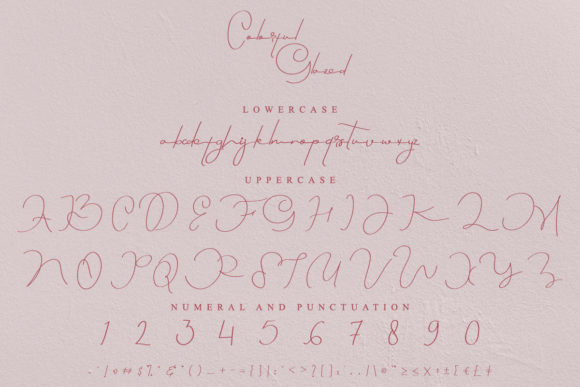 Colorful
Glazed
LOWERCASE
abcdefghijklmnopqrstuvwxyz
UPPERCASE
A B C D E F G H I J K L M
N O P Q R S T U V W X Y Z
NUMERAL AND PUNCTUATION
1 2 3 4 5 6 7 8 9 0